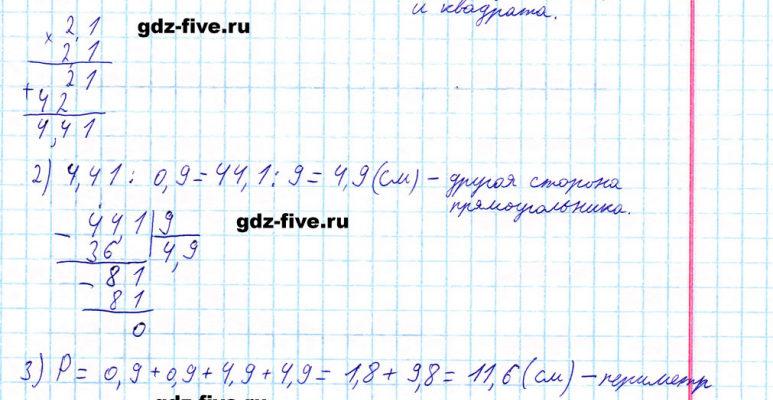 и квадрата.
gdz-five.ru
× 2,1
2,1
+ 21
42
4,41
2) 4,41 : 0,9 = 44,1 : 9 = 4,9 (см) – другая сторона
прямоугольника.
gdz-five.ru
– 44,1 | 9
36 | 4,9
– 81
81
0
3) P = 0,9 + 0,9 + 4,9 + 4,9 = 1,8 + 9,8 = 11,6 (см) – периметр
gdz-five.ru